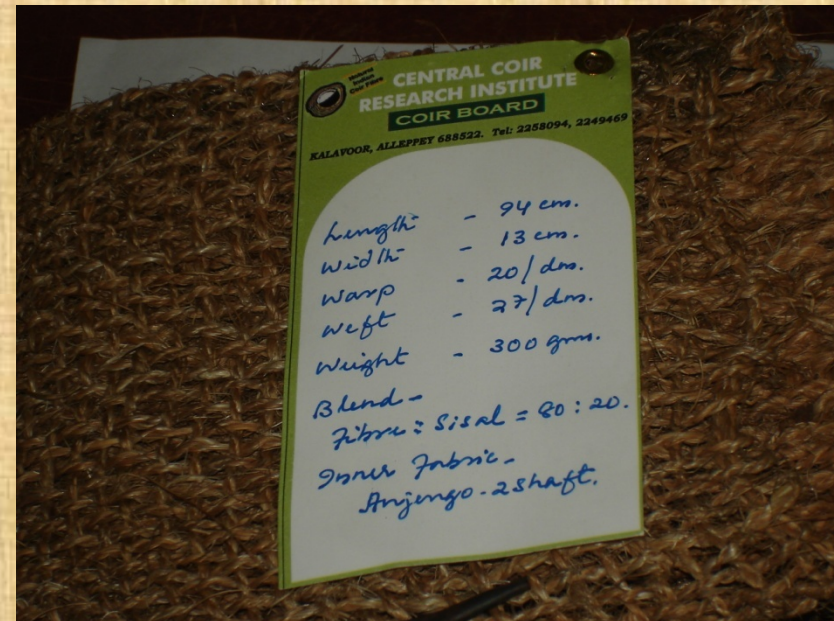 Natural
Indian
Coir Fibre
CENTRAL COIR
RESEARCH INSTITUTE
COIR BOARD
KALAVOOR, ALLEPPEY 688522. Tel: 2258094, 2249469
Length - 94 cm.
Width - 13 cm.
Warp - 20/dm.
Weft - 27/dm.
Weight - 300 gms.
Blend -
Fibre : Sisal = 80 : 20.
Inner Fabric -
Anjengo - 2 shaft.